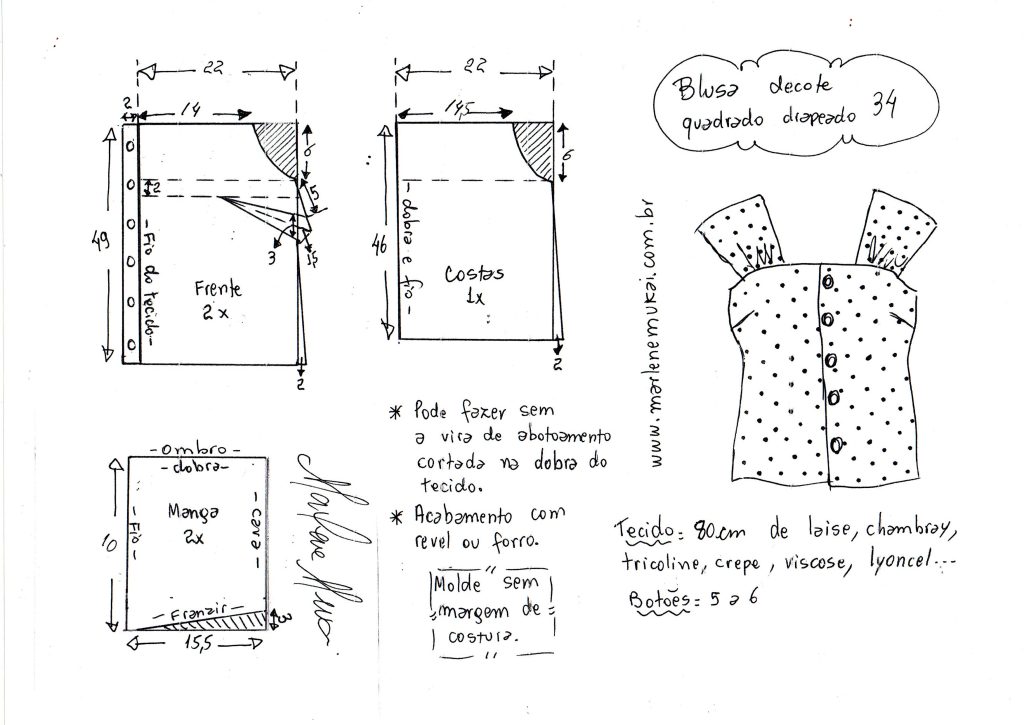 Blusa decote
quadrado drapeado 34
22
2
14
6
2
5
49
3
1,5
Fio do tecido
Frente
2x
2
22
14,5
6
46
dobra e fio
Costas
1x
2
www.marlenemukai.com.br
-ombro-
-dobra-
10
-Fio-
Manga
2x
-cava-
-Franzir-
3
15,5
* Pode fazer sem
a vira de abotoamento
cortada na dobra do
tecido.
* Acabamento com
revel ou forro.
Molde sem
margem de
costura.
Tecido: 80.cm de laise, chambray,
tricoline, crepe, viscose, lyoncel...
Botões: 5 a 6